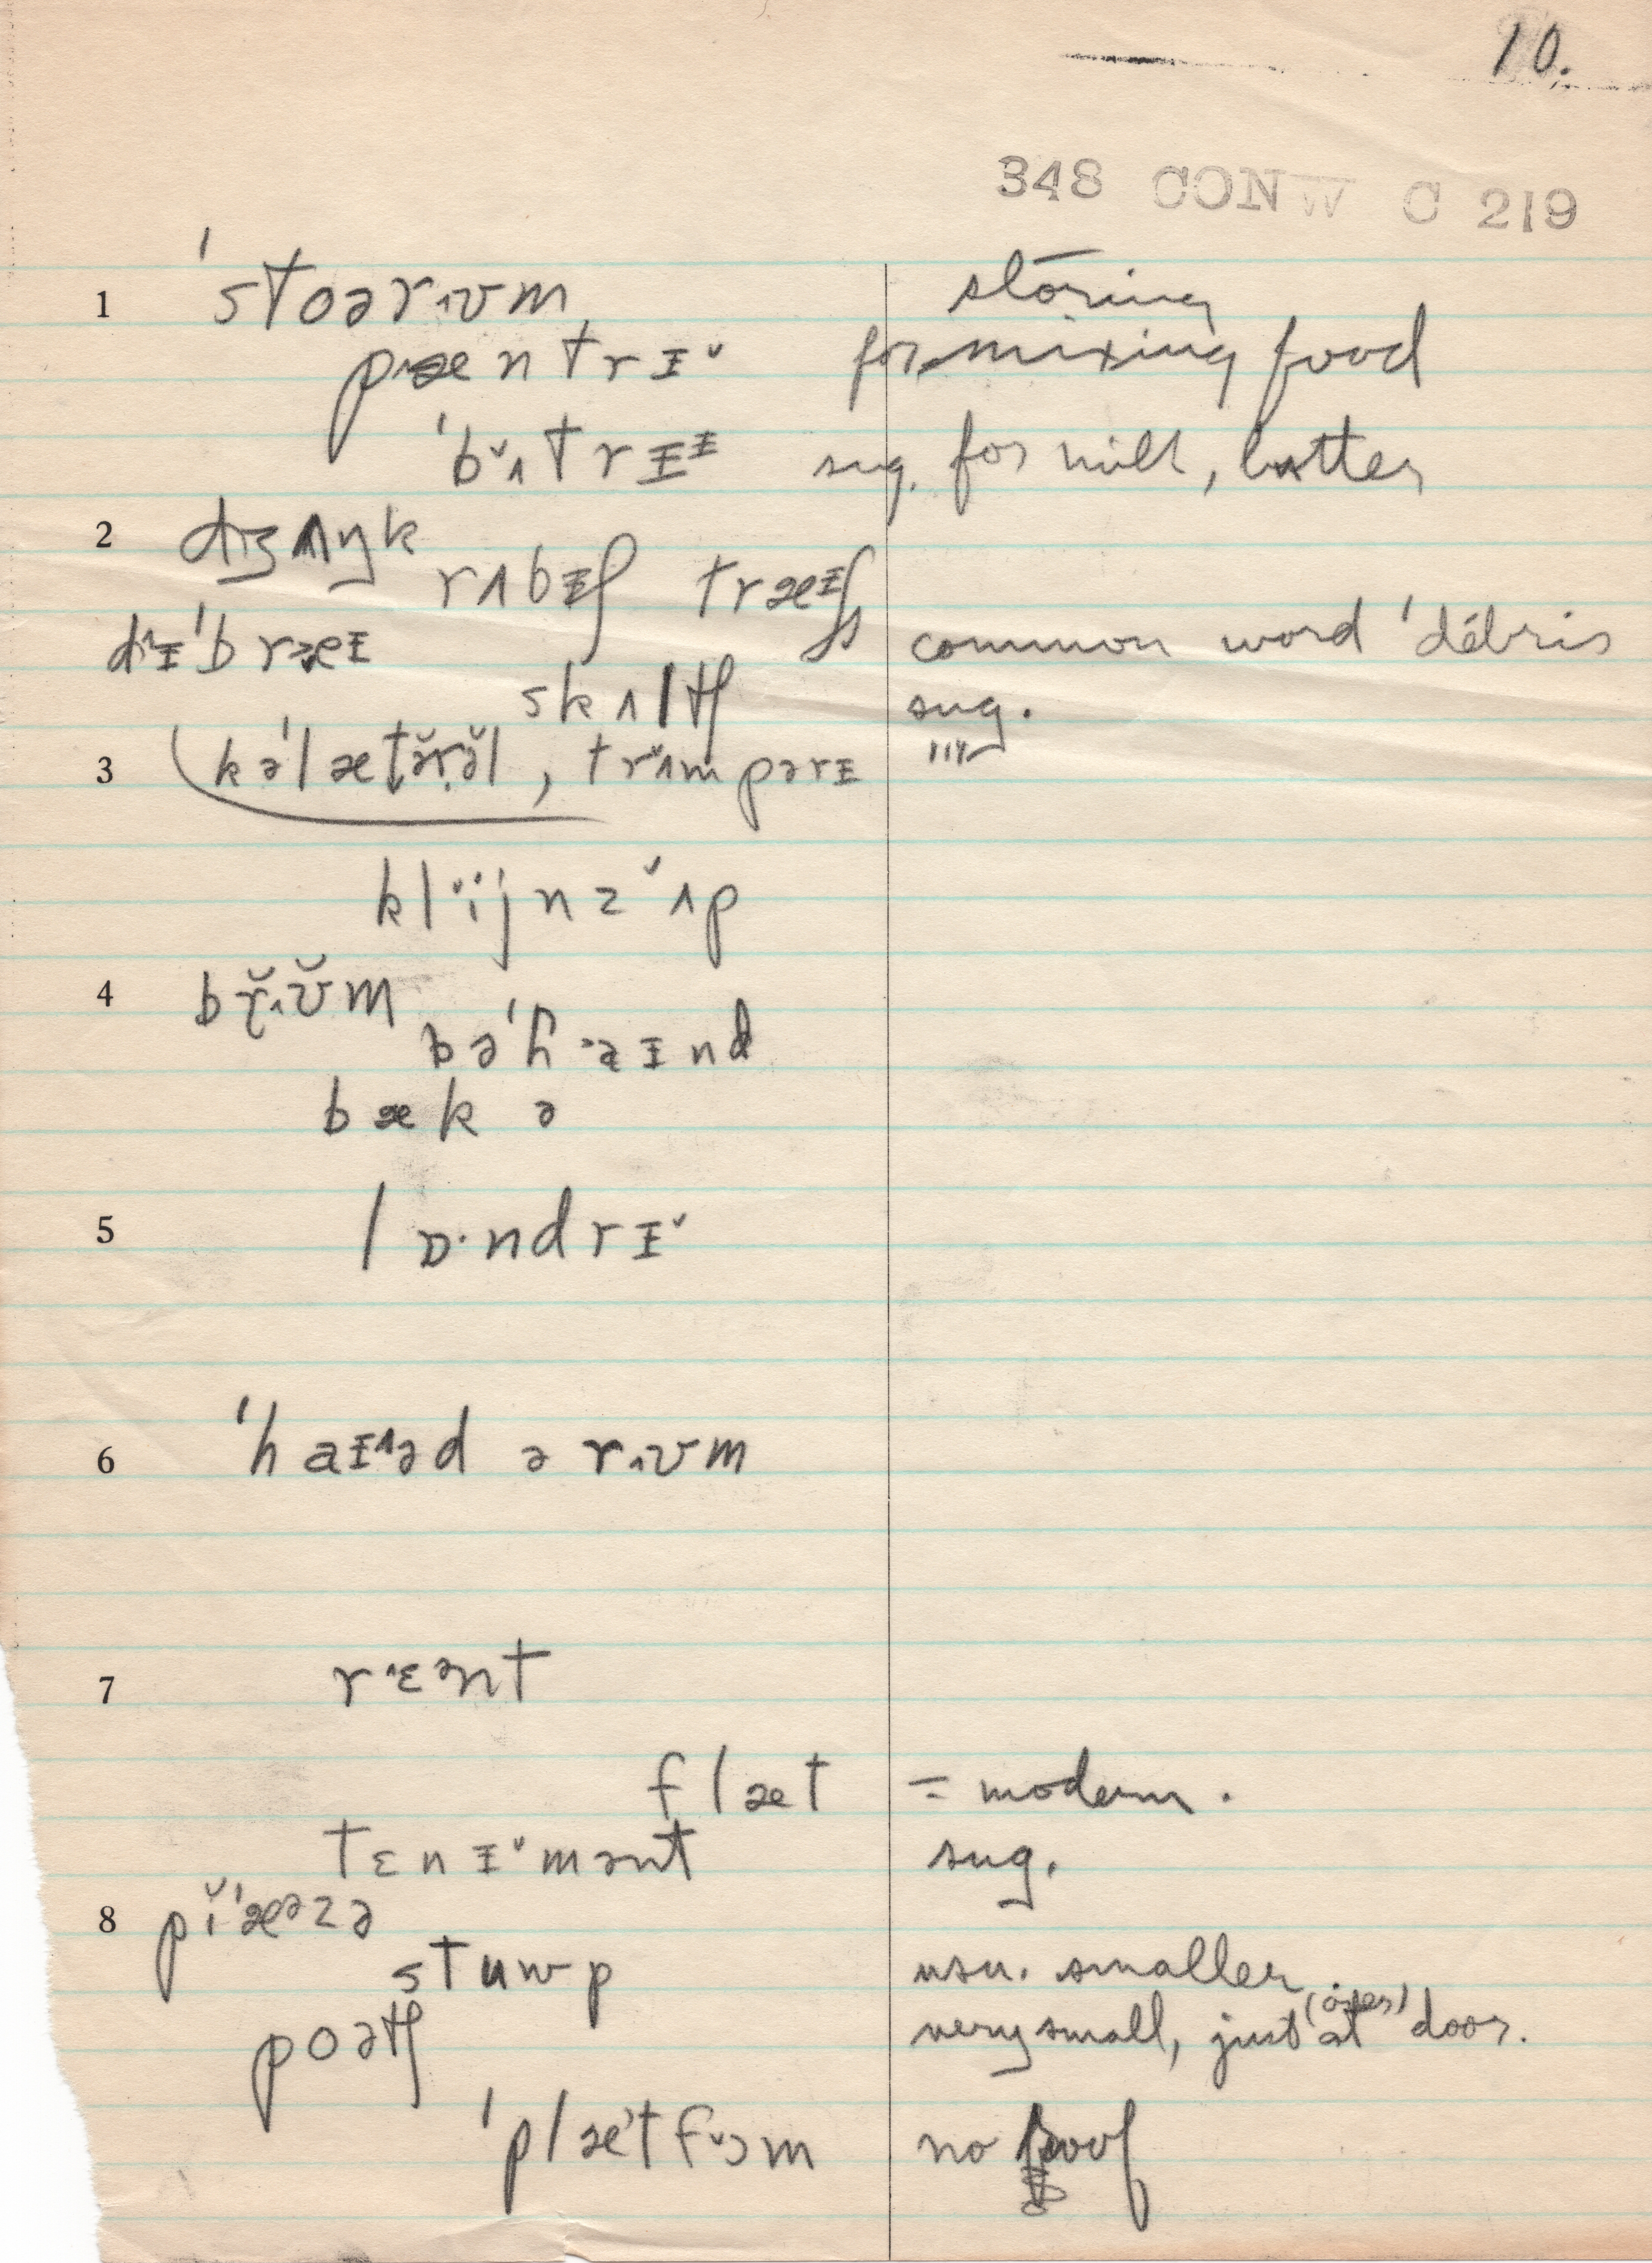 10.
348 CONW C 219
1 ˈstoərᴧʊm stōring
pæntrɪ̆ for mixing food
ˈbʌ̆trɪɪ sug. for milk, butter
2 dɪʒʌŋk
rʌbɪʃ træɪʃ
dɪˈbræɪ common word 'débris
skʌltʃ sug.
3 kəˈlætə̆rə̆l, trʌ̆mpərɪ
klĭjnz ʌ̆p
4 brᴧʊ̆m
bəˈhaɪnd
bækə
5 lɒ·ndrɪ̆
6 ˈhaɪəd ə rᴧʊm
7 rɛənt
flæt = modern.
tɛnɪ̆mənt sug.
8 pĭˈæəzə
stuwp usu. smaller
poətʃ very small, just (over) at door.
ˈplætfɔm no roof